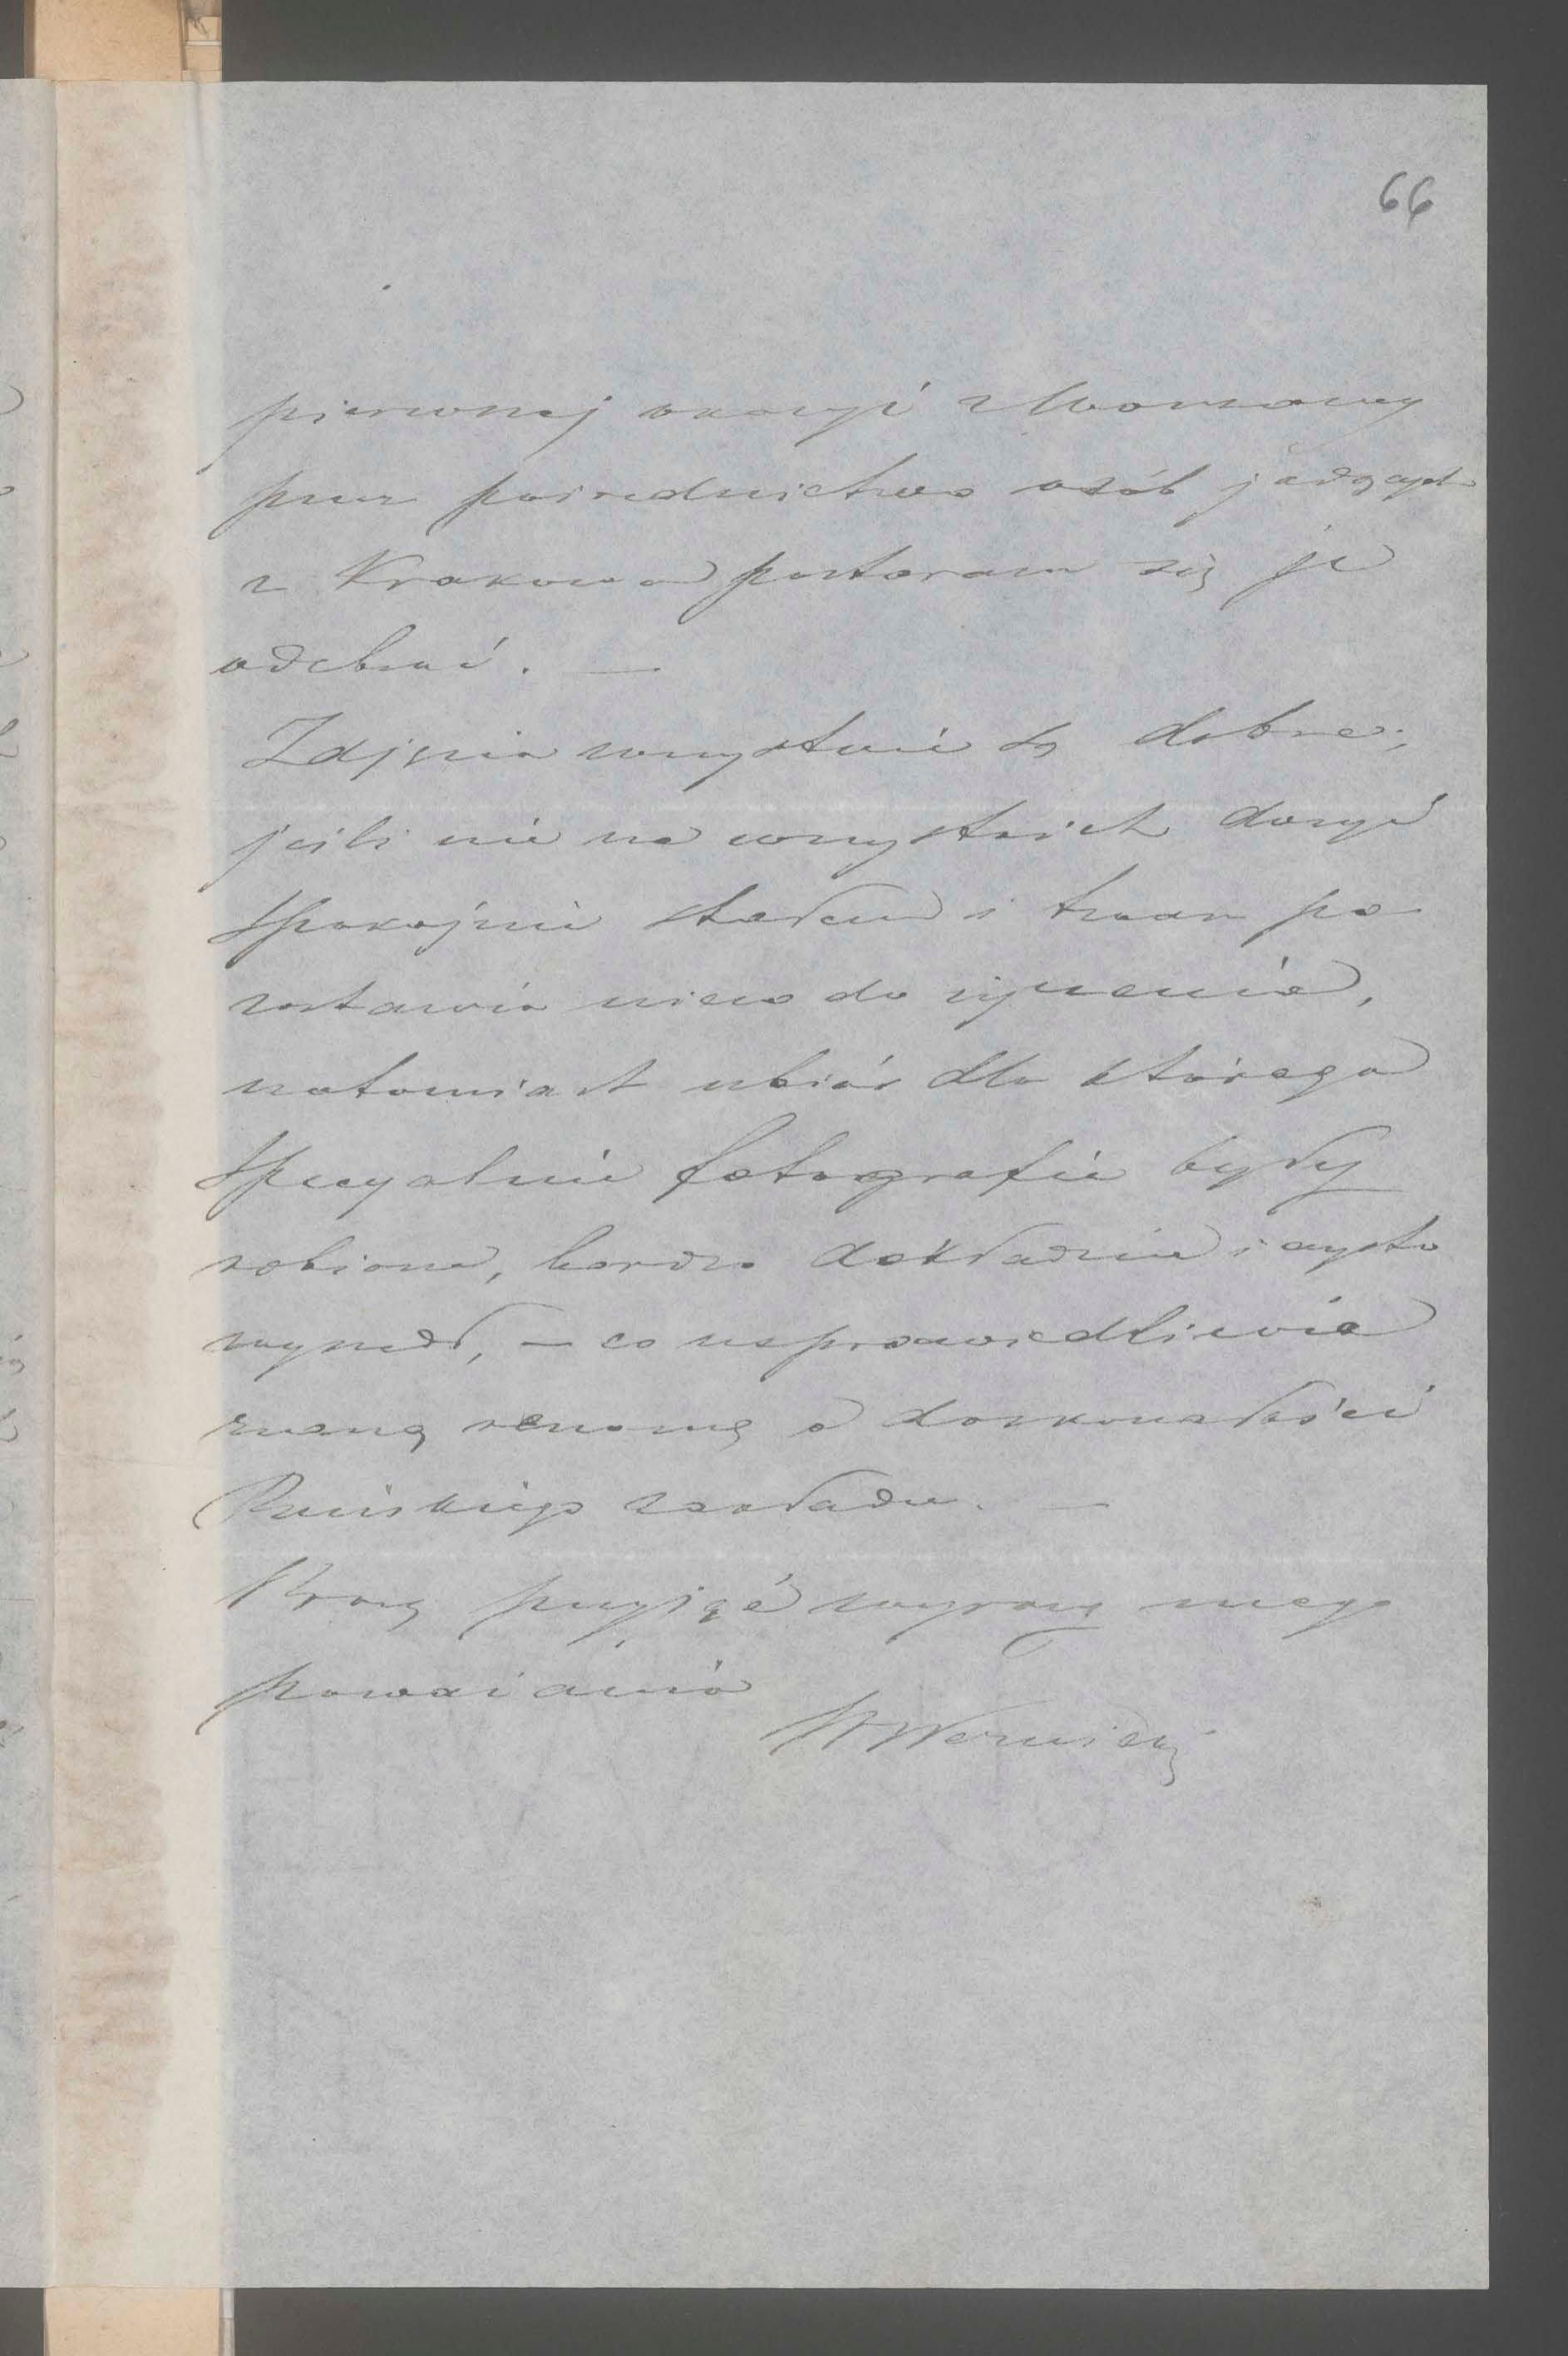 66
pierwszej okazyi z Warszawy
przez pośrednictwo osób jadących
z Krakowa postaram się je
odebrać. —
Zdjęcia wszystkie są dobre;
jeśli nie na wszystkich dosyć
spokojnie stałem i twarz po
zostawia nieco do życzenia,
natomiast ubiór dla którego
specyalnie fotografie były
robione, bardzo dokładnie i czysto
wyszedł, — co usprawiedliwia
znaną renomę o doskonałości
Pańskiego zakładu. —
Proszę przyjąć wyrazy mego
poważania